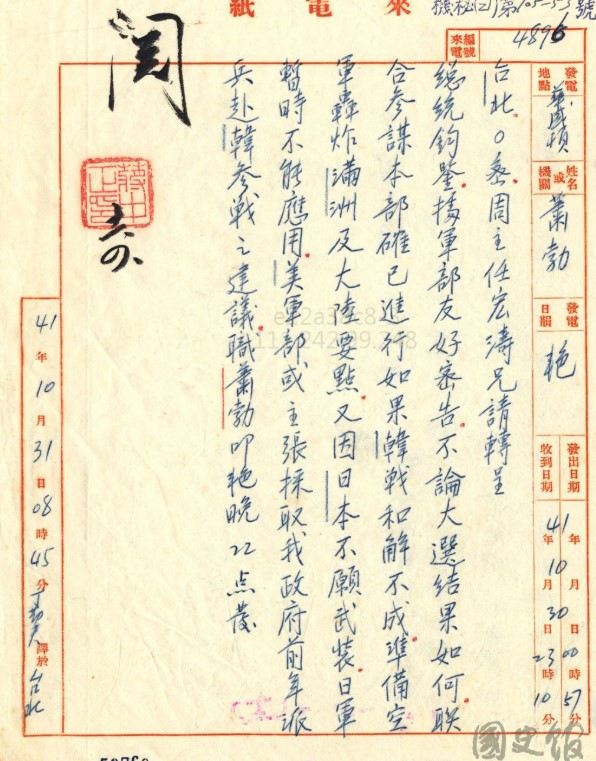 來電紙
機秘(乙)第105-53號
來電編號 4896
發電地點 華盛頓
姓名或機關 蕭勃
發電日韻 艳
發出日期 年 月 日 00時57分
收到日期 41年10月30日23時10分
台北○密周主任宏濤兄請轉呈
總統鈞鑒據軍部友好密告不論大選結果如何联
合參謀本部確已進行如果韓戰和解不成準備空
軍轟炸滿洲及大陸要點又因日本不願武裝日軍
暫時不能應用美軍部或主張採取我政府前年派
兵赴韓參战之建議職蕭勃叩艳晚22点發
閱
蔣中正印
41年10月31日08時45分 譯於台北
國史館